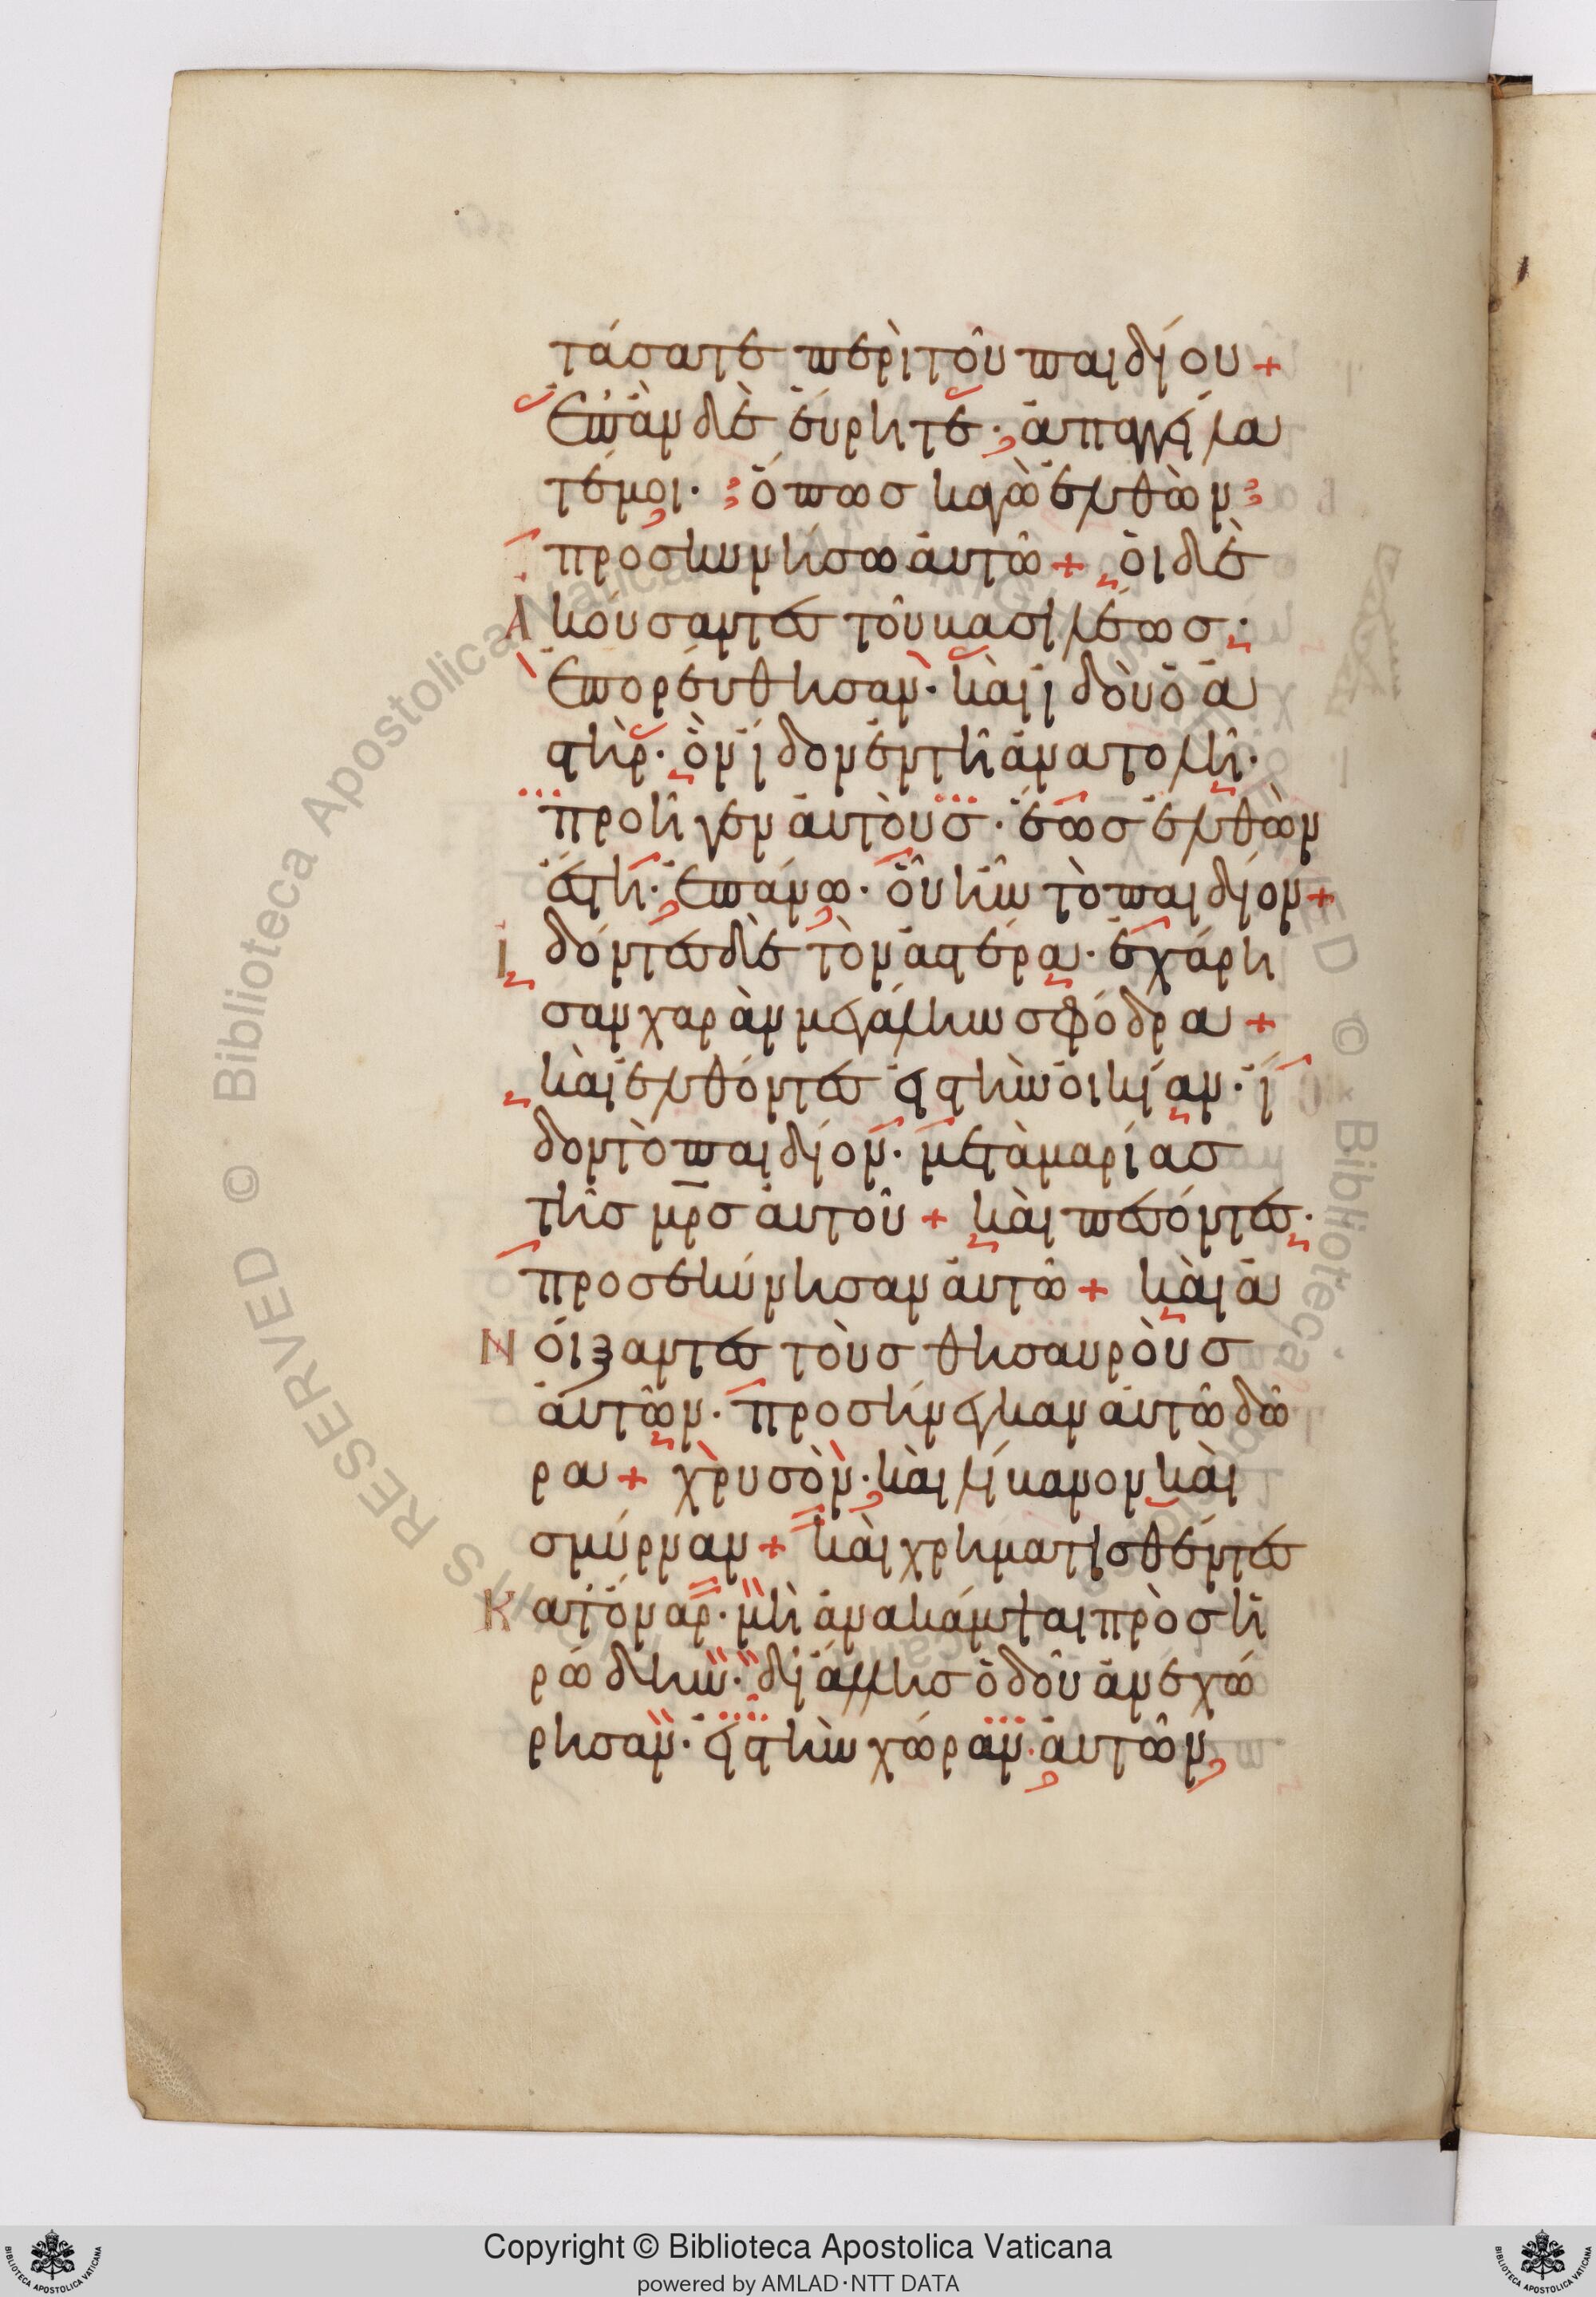 τάσατε περὶ τοῦ παιδίου +
ἐπὰν δὲ εὕρητε · ἀπαγγείλα
τέ μοι · ὅπως κἀγὼ ἐλθὼν
προσκυνήσω αὐτῶ + οἱ δὲ
Ἀκούσαντες τοῦ βασιλέως ·
ἐπορεύθησαν · καὶ ἰδοὺ ὁ ἀ
στὴρ · ὃν ἴδον ἐν τῆ ἀνατολῆ ·
προῆγεν αὐτοὺς · ἕως ἐλθὼν
ἔστη · ἐπάνω · οὗ ἦν τὸ παιδίον +
Ἰδόντες δὲ τὸν ἀστέρα · ἐχάρη
σαν χαρὰν μεγάλην σφόδρα +
καὶ ἐλθόντες εἰς τὴν οἰκίαν · ἴ
δον τὸ παιδίον · μετὰ μαρίας
τῆς μρ̅ς αὐτοῦ + καὶ πεσόντες ·
προσεκύνησαν αὐτῶ + καὶ ἀ
Νοίξαντες τοὺς θησαυροὺς
αὐτῶν · προσήνεγκαν αὐτῶ δῶ
ρα + χρυσὸν · καὶ λίβανον καὶ
σμύρναν + καὶ χρηματισθέντες
Κατ' ὄναρ · μὴ ἀνακάμψαι πρὸς ἡ
ρώδην · δι' ἄλλης ὁδοῦ ἀνεχώ
ρησαν · εἰς τὴν χώραν · αὐτῶν
© Biblioteca Apostolica Vaticana
RESERVED
Copyright © Biblioteca Apostolica Vaticana
powered by AMLAD·NTT DATA
BIBLIOTECA APOSTOLICA VATICANA
BIBLIOTECA APOSTOLICA VATICANA